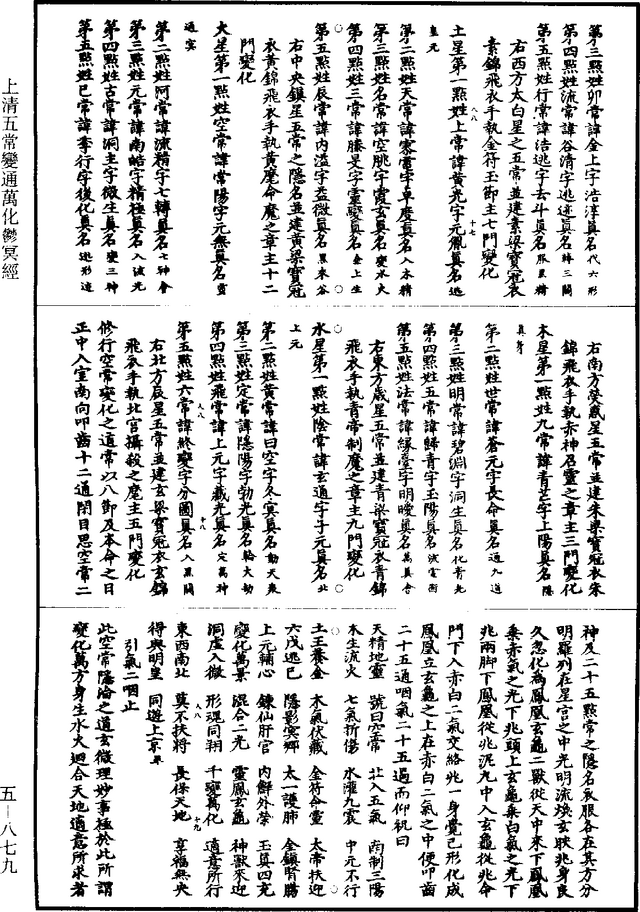 上清五常變通萬化鬱冥經
五—八七九
第三點姓卯常諱金上字浩淳眞名代六形
第四點姓流常諱谷清字逃迹眞名綘三關
第五點姓行常諱浩逃字去斗眞名服黑精
右西方太白星之五常並建素梁寶冠衣
素錦飛衣手執金符玉節主七門變化
土星第一點姓上常諱黃光字元鳳眞名逃
皇元
第二點姓天常諱寒霄字卓度眞名入本精
第三點姓名常諱空眺字霞玄眞名變水火
第四點姓三常諱勝是字靈變眞名金上生
第五點姓辰常諱內溢字益微眞名黑米谷
右中央鎮星五常之隱名並建黃梁寶冠
衣黃錦飛衣手執黃麾命魔之章主十二
門變化
火星第一點姓空常諱常陽字元無眞名當
通宾
第二點姓阿常諱流精字七轉眞名七神會
第三點姓元常諱南皓字精極眞名入流光
第四點姓古常諱洞主字微生眞名變三神
第五點姓巳常諱季行字後化眞名逃形遠
右南方熒惑星五常並建朱梁寶冠衣朱
錦飛衣手執赤神召靈之章主三門變化
木星第一點姓九常諱青芒字上陽眞名隱
眞身
第二點姓世常諱蒼元字長命眞名通九道
第三點姓明常諱碧淵字洞生眞名化青光
第四點姓五常諱歸青字玉陽眞名流霄衝
第五點姓法常諱緣臺字明曖眞名萬眞會
右東方歲星五常並建青梁寶冠衣青錦
飛衣手執青帝制魔之章主九門變化
水星第一點姓陰常諱玄通字子元眞名北
上元
第二點姓黃常諱曰空字冬冥眞名動天爽
第三點姓定常諱隱陽字勃光眞名輪大動
第四點姓飛常諱上元字藏光眞名定萬神
第五點姓六常諱終變字分圖眞名入黑關
右北方辰星五常並建玄梁寶冠衣玄錦
飛衣手執北官攝殺之麾主五門變化
修行空常變化之道常以八節及本命之日
正中入室南向叩齒十二通閉目思空常二
神及二十五點常之隱名衣服各在其方分
明羅列在星宫之中光明流煥玄映兆身良
久忽化為鳳凰玄龜二獸從天中來下鳳凰
乘赤氣之光下兆頭上玄龜乘白氣之光下
兆兩脚下鳳凰從兆泥丸中入玄龜從兆命
門下入赤白二氣交絡兆一身覺己形化成
鳳凰立玄龜之上在赤白二氣之中便叩齒
二十五通咽氣二十五過而仰祝曰
天精地靈　號曰空常　北入五氣　南制三陽
木生流火　七氣折傷　水灌九震　中元不行
土王養金　木氣伏藏　金符命靈　太帝扶迎
六戊逃巳　隱影冥鄉　太一護肺　金鎮腎腸
上元輔心　鍊仙肝官　內鮮外榮　玉眞四充
變化萬景　混合二光　靈鳳玄龜　神獸來迎
洞虛入微　形魂同翔　千變萬化　適意所行
東西南北　莫不扶將　長保天地　享福無央
得與明皇　同遊上京畢
引氣二咽止
此空常隱淪之道玄微理妙事極於此所謂
變化萬方身生水火迴合天地適意所求者